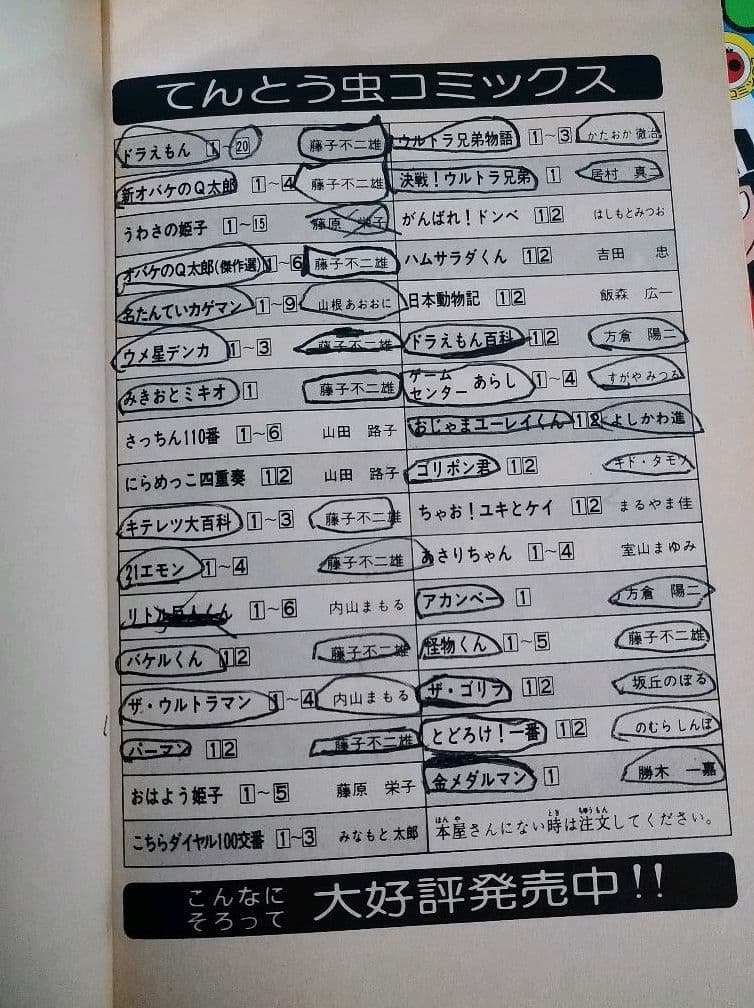 てんとう虫コミックス
ドラえもん 1～20 藤子不二雄
新オバケのQ太郎 1～4 藤子不二雄
うわさの姫子 1～15 藤原 栄子
オバケのQ太郎(傑作選) 1～6 藤子不二雄
名たんていカゲマン 1～9 山根あおおに
ウメ星デンカ 1～3 藤子不二雄
みきおとミキオ 1 藤子不二雄
さっちん110番 1～6 山田 路子
にらめっこ四重奏 12 山田 路子
キテレツ大百科 1～3 藤子不二雄
21エモン 1～4 藤子不二雄
リトル巨人くん 1～6 内山まもる
バケルくん 12 藤子不二雄
ザ・ウルトラマン 1～4 内山まもる
パーマン 12 藤子不二雄
おはよう姫子 1～5 藤原 栄子
こちらダイヤル100交番 1～3 みなもと太郎
ウルトラ兄弟物語 1～3 かたおか徹治
決戦!ウルトラ兄弟 1 居村 真二
がんばれ!ドンベ 12 はしもとみつお
ハムサラダくん 12 吉田 忠
日本動物記 12 飯森 広一
ドラえもん百科 12 方倉 陽二
ゲームセンターあらし 1～4 すがやみつる
おじゃまユーレイくん 12 よしかわ進
ゴリポン君 12 キド・タモツ
ちゃお!ユキとケイ 12 まるやま佳
あさりちゃん 1～4 室山まゆみ
アカンベー 1 方倉 陽二
怪物くん 1～5 藤子不二雄
ザ・ゴリラ 12 坂丘のぼる
とどろけ!一番 12 のむらしんぼ
金メダルマン 1 勝木 一嘉
本屋さんにない時は注文してください。
こんなに
そろって
大好評発売中!!